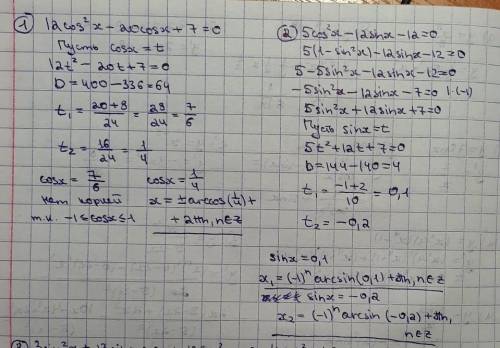 ① 12cos²x - 20cosx + 7 = 0
Пусть cosx = t
12t² - 20t + 7 = 0
D = 400 - 336 = 64
t₁ = (20+8)/24 = 28/24 = 7/6
t₂ = 16/24 = 1/4
cosx = 7/6 cosx = 1/4
нет корней x = ±arccos(1/4) +
т.к. -1 ≤ cosx ≤ 1 + 2πn, n∈Z
② 5cos²x - 12sinx - 12 = 0
5(1 - sin²x) - 12sinx - 12 = 0
5 - 5sin²x - 12sinx - 12 = 0
-5sin²x - 12sinx - 7 = 0 |·(-1)
5sin²x + 12sinx + 7 = 0
Пусть sinx = t
5t² + 12t + 7 = 0
D = 144 - 140 = 4
t₁ = (-1+2)/10 = 0,1
t₂ = -0,2
sinx = 0,1
x₁ = (-1)ⁿ arcsin(0,1) + πn, n∈Z
sinx = -0,2
x₂ = (-1)ⁿ arcsin(-0,2) + πn,
n∈Z